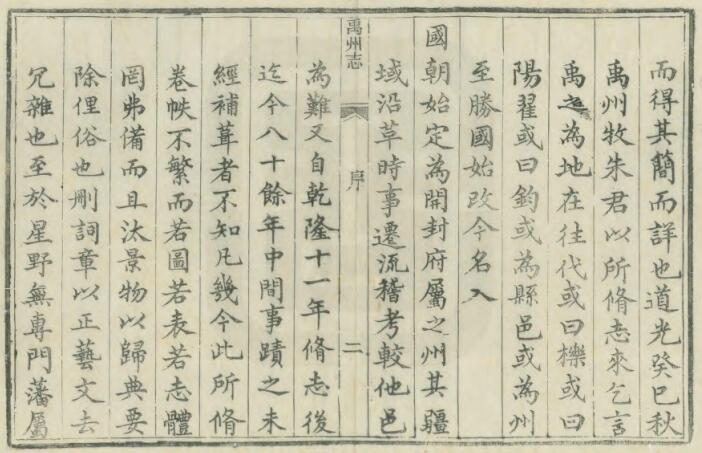 而得其簡而詳也道光癸巳秋
禹州牧朱君以所脩志來乞言
禹之為地在往代或曰櫟或曰
陽翟或曰鈞或為縣邑或為州
至勝國始改今名入
國朝始定為開封府屬之州其疆
域沿革時事遷流稽考較他邑
禹州志 序 二
為難又自乾隆十一年脩志後
迄今八十餘年中間事蹟之未
經補葺者不知凡幾今此所脩
卷帙不繁而若圖若表若志體
罔弗備而且汰景物以歸典要
除俚俗也刪詞章以正藝文去
冗雜也至於星野無專門藩屬